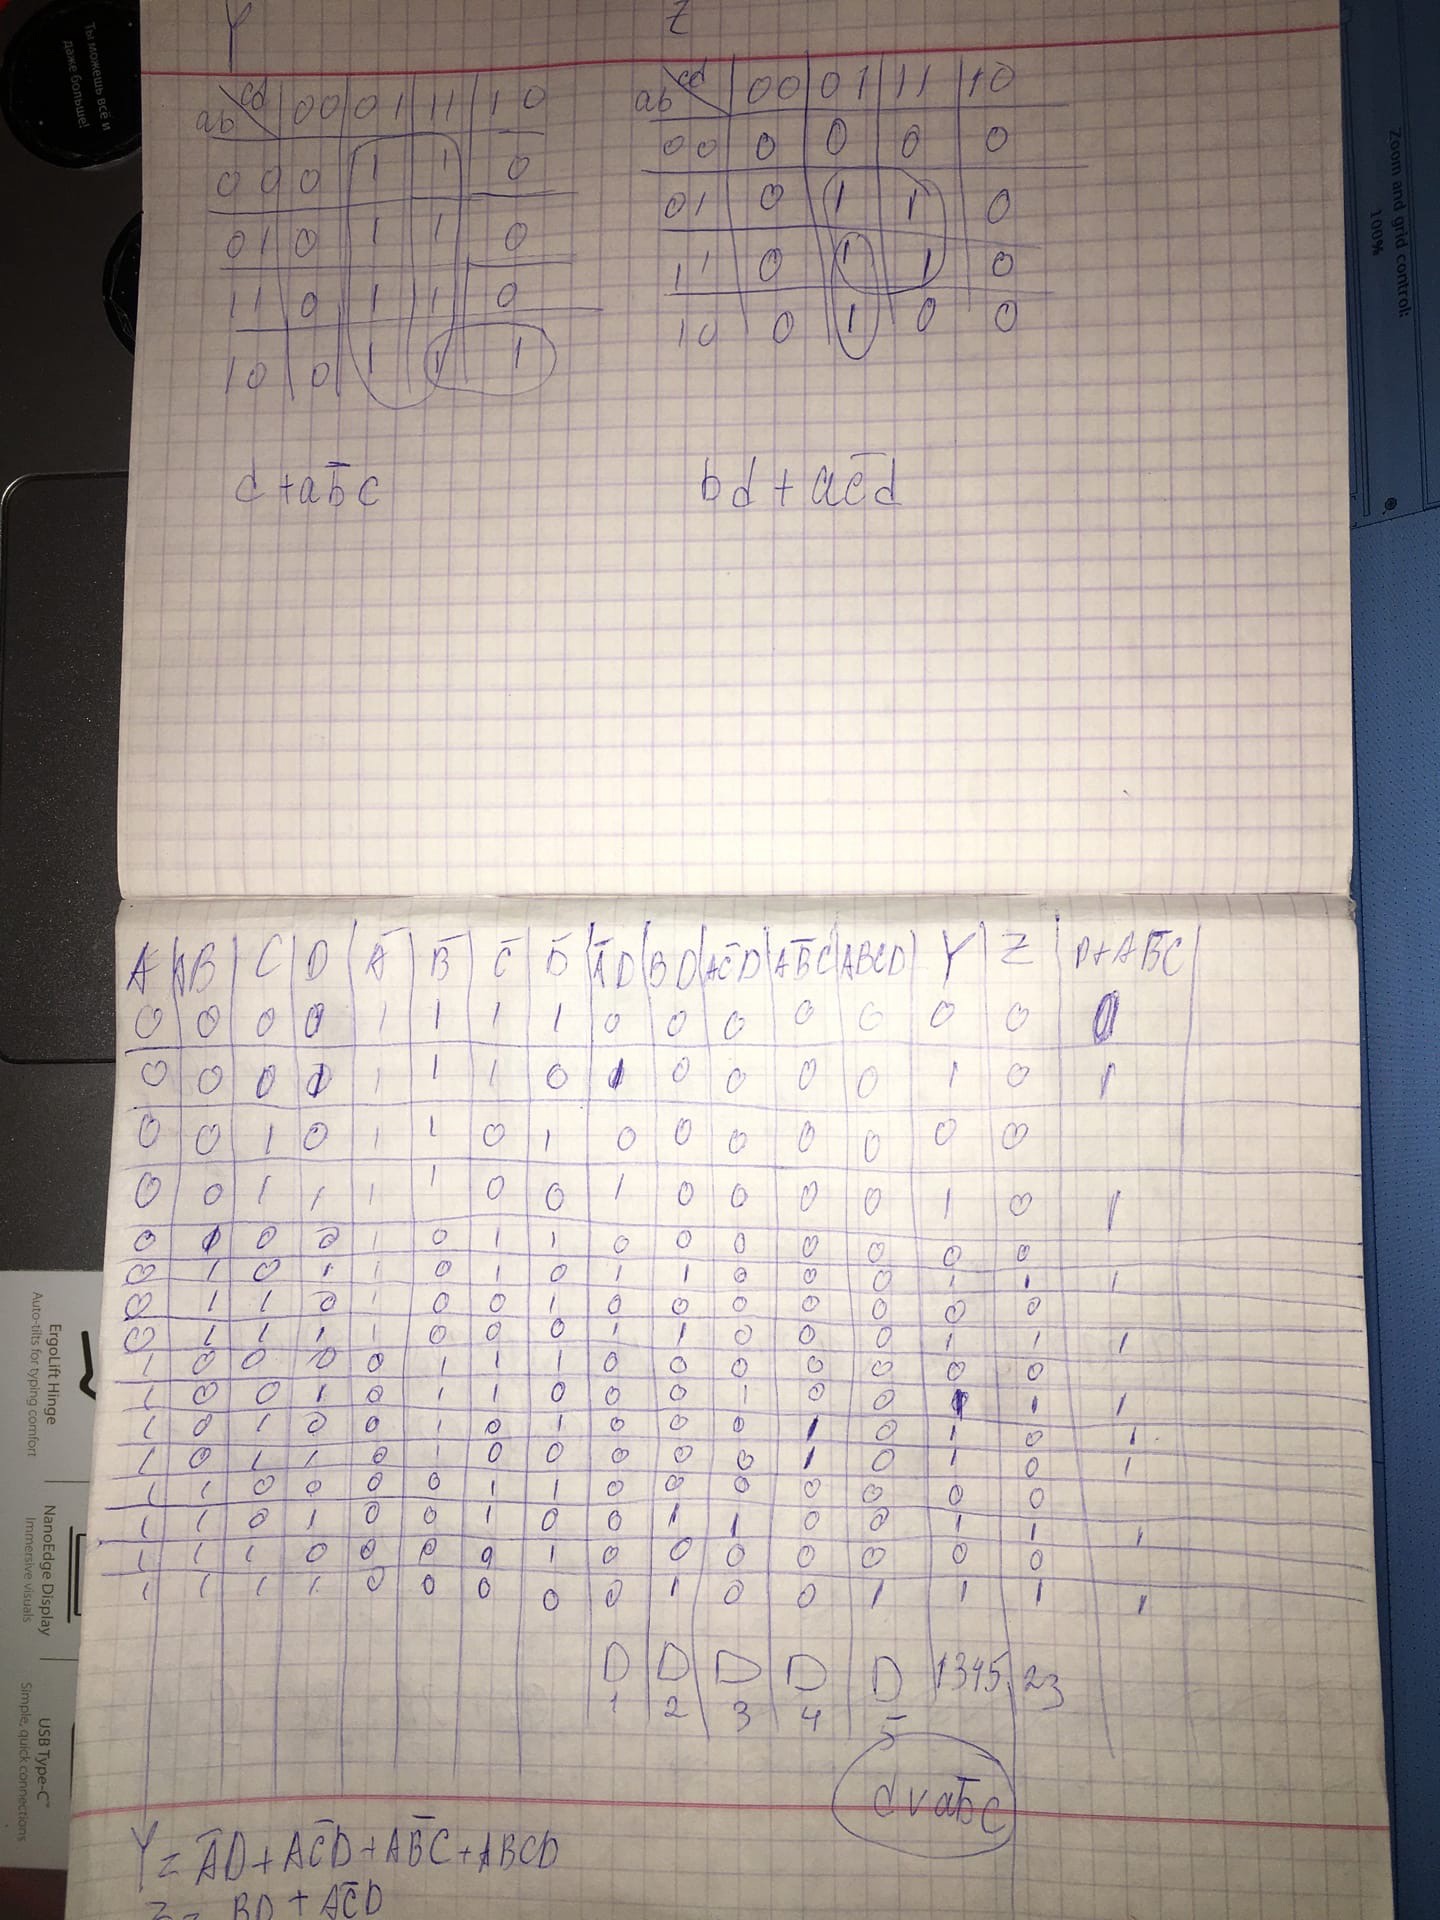 Y Z
ab\cd 00 01 11 10
00 0 1 1 0
01 0 1 1 0
11 0 1 1 0
10 0 1 1 1
ab\cd 00 01 11 10
00 0 0 0 0
01 0 1 1 0
11 0 1 1 0
10 0 1 0 0
d+ab̅c
bd+ac̅d
A B C D A̅ B̅ C̅ D̅ A̅D BD AC̅D AB̅C ABCD Y Z D+AB̅C
0 0 0 0 1 1 1 1 0 0 0 0 0 0 0 0
0 0 0 1 1 1 1 0 1 0 0 0 0 1 0 1
0 0 1 0 1 1 0 1 0 0 0 0 0 0 0
0 0 1 1 1 1 0 0 1 0 0 0 0 1 0 1
0 1 0 0 1 0 1 1 0 0 0 0 0 0 0
0 1 0 1 1 0 1 0 1 1 0 0 0 1 1 1
0 1 1 0 1 0 0 1 0 0 0 0 0 0 0
0 1 1 1 1 0 0 0 1 1 0 0 0 1 1 1
1 0 0 0 0 1 1 1 0 0 0 0 0 0 0
1 0 0 1 0 1 1 0 0 0 1 0 0 1 1 1
1 0 1 0 0 1 0 1 0 0 0 1 0 1 0 1
1 0 1 1 0 1 0 0 0 0 0 1 0 1 0 1
1 1 0 0 0 0 1 1 0 0 0 0 0 0 0
1 1 0 1 0 0 1 0 0 1 1 0 0 1 1 1
1 1 1 0 0 0 0 1 0 0 0 0 0 0 0
1 1 1 1 0 0 0 0 0 1 0 0 1 1 1 1
D D D D D 1345 23
1 2 3 4 5
dvab̅c
Y= A̅D+AC̅D+AB̅C+ABCD
Z= BD+AC̅D
Ты можешь всё и
даже больше!
Zoom and grid control:
100%
ErgoLift Hinge
Auto-tilts for typing comfort
NanoEdge Display
Immersive visuals
USB Type-C™
Simple, quick connections